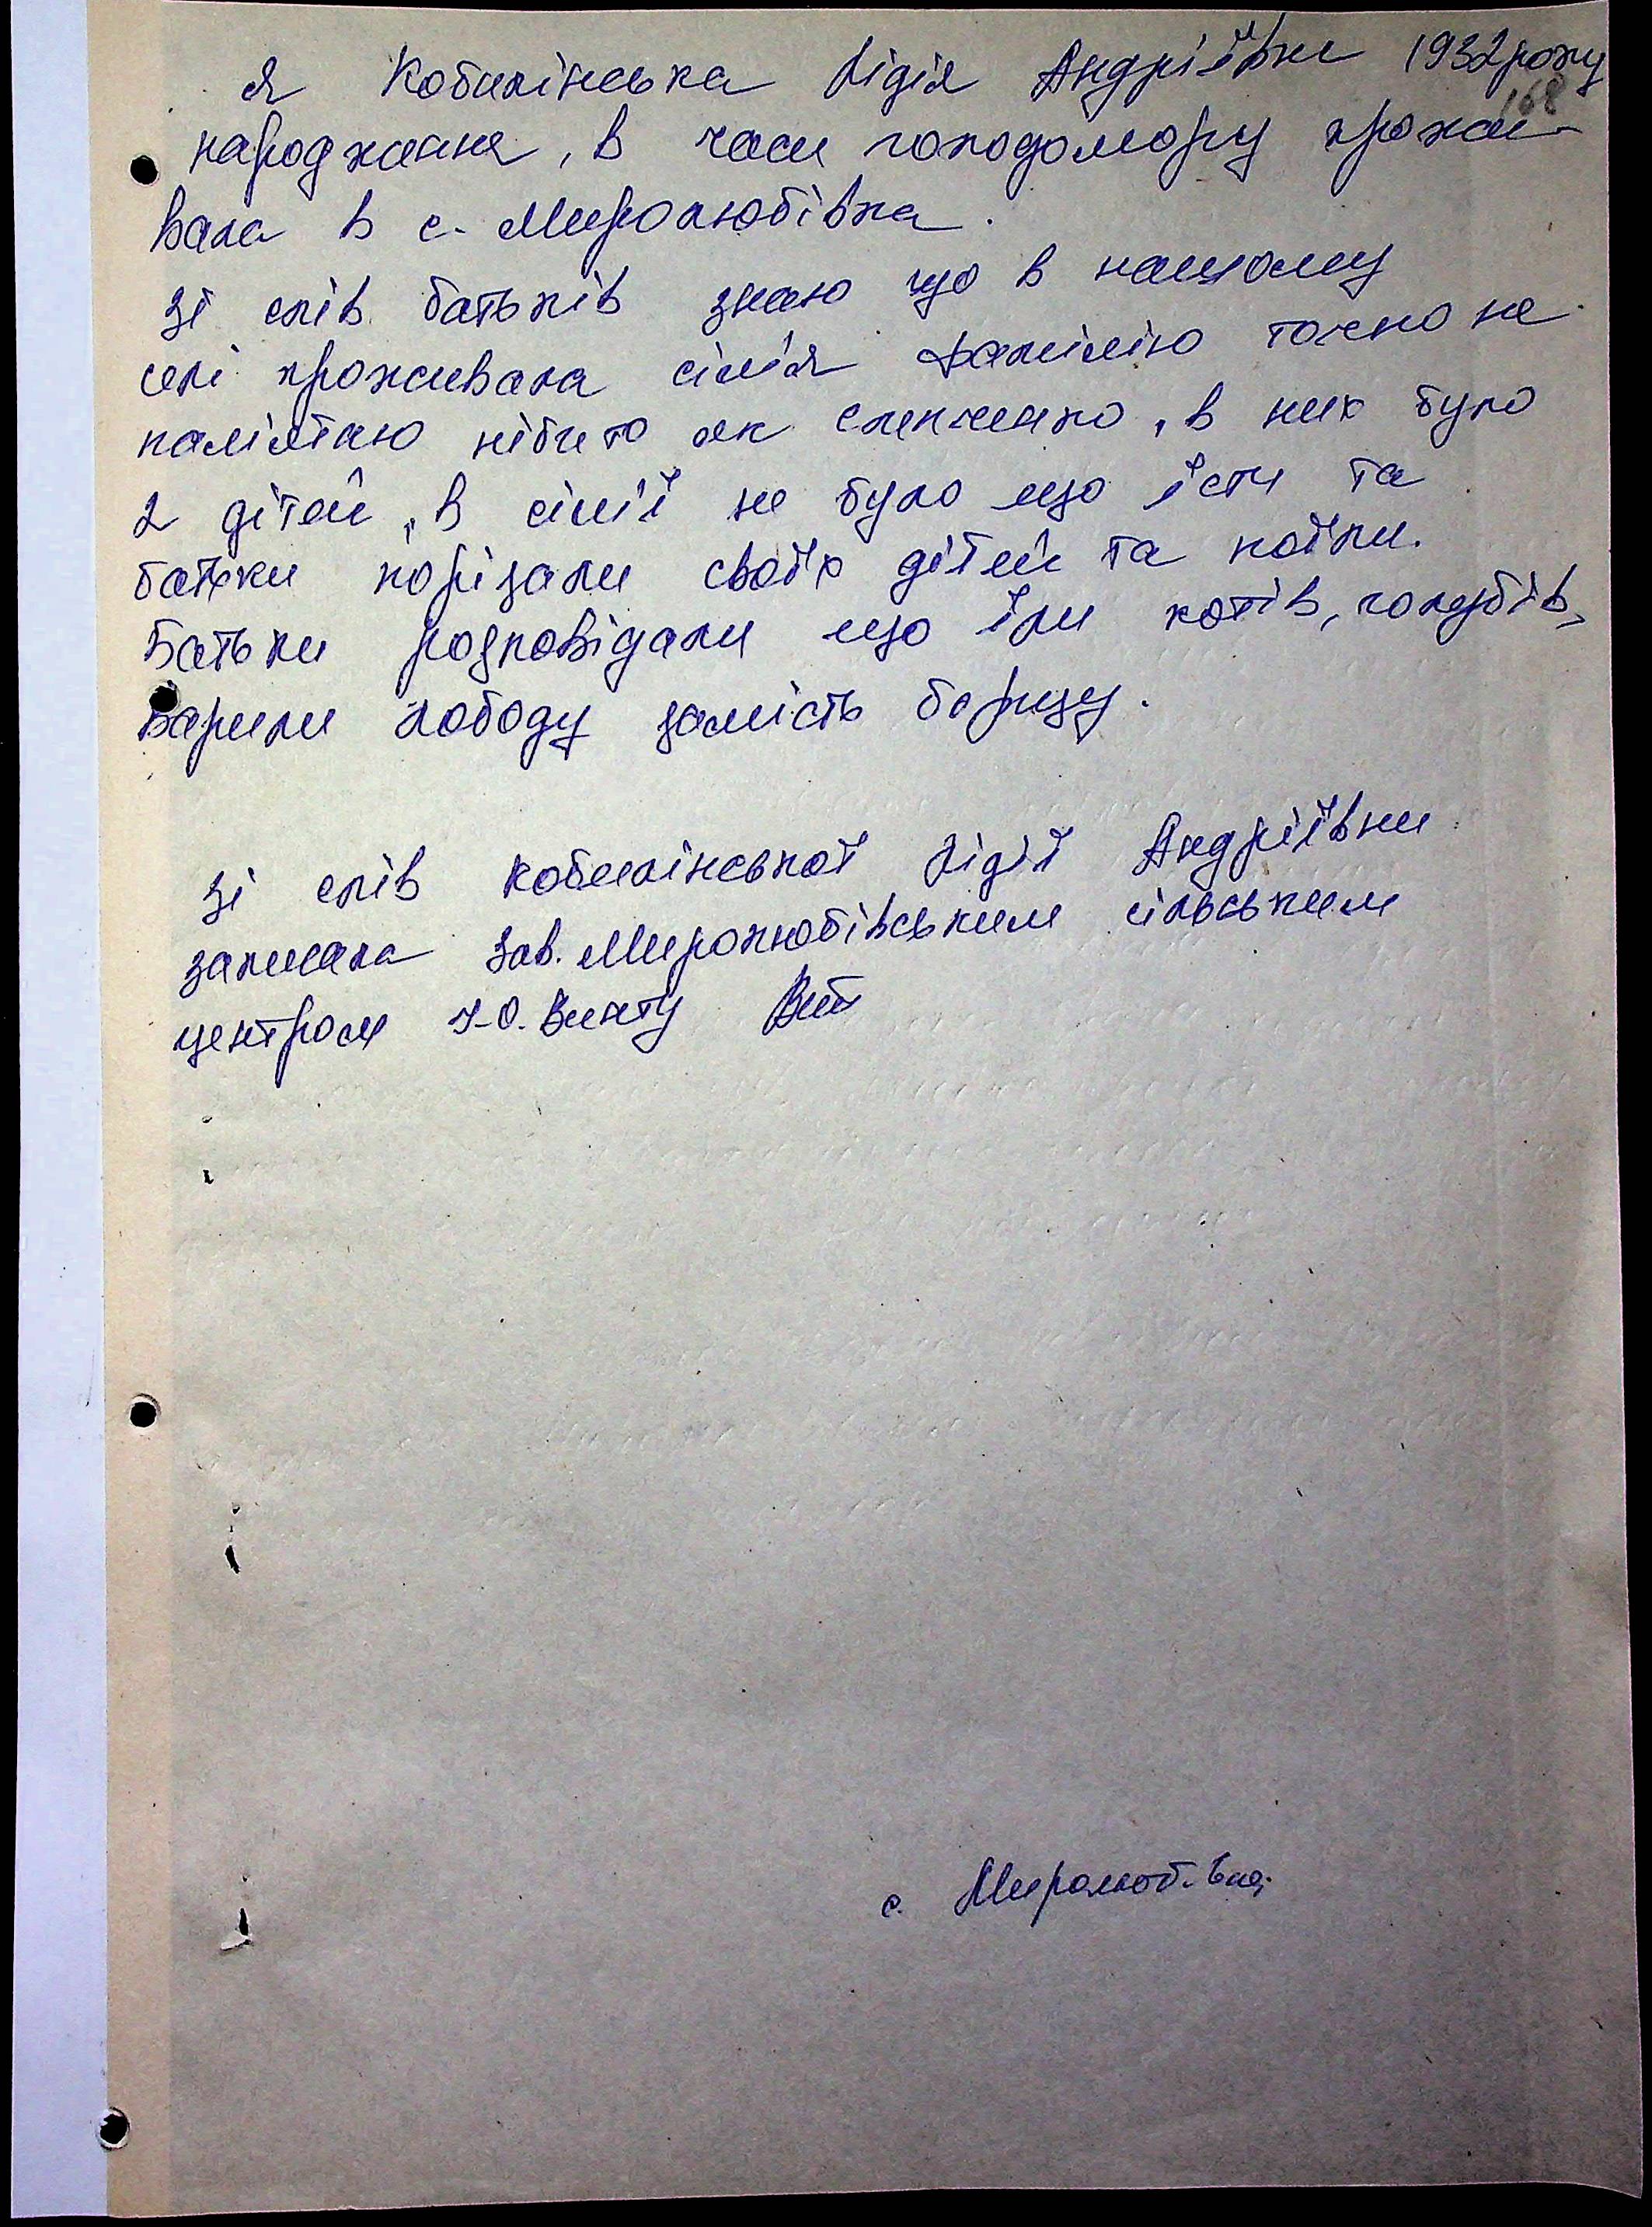 Я Кобилінська Лідія Андріївна 1932 року
168
народження, в часи голодомору прожи-
вала в с. Миролюбівка.
Зі слів батьків знаю що в нашому
селі проживала сім'я фамілію точно не
памʼятаю нібито як Слепченко, в них було
2 дітей, в сімʼї не було що їсти та
батьки порізали своїх дітей та поїли.
Батьки розповідали що їли котів, голубів,
варили лободу замість борщу.
Зі слів Кобилінської Лідії Андріївни
записала зав. Миролюбівським сільським
центром Винту
с. Миролюбівка